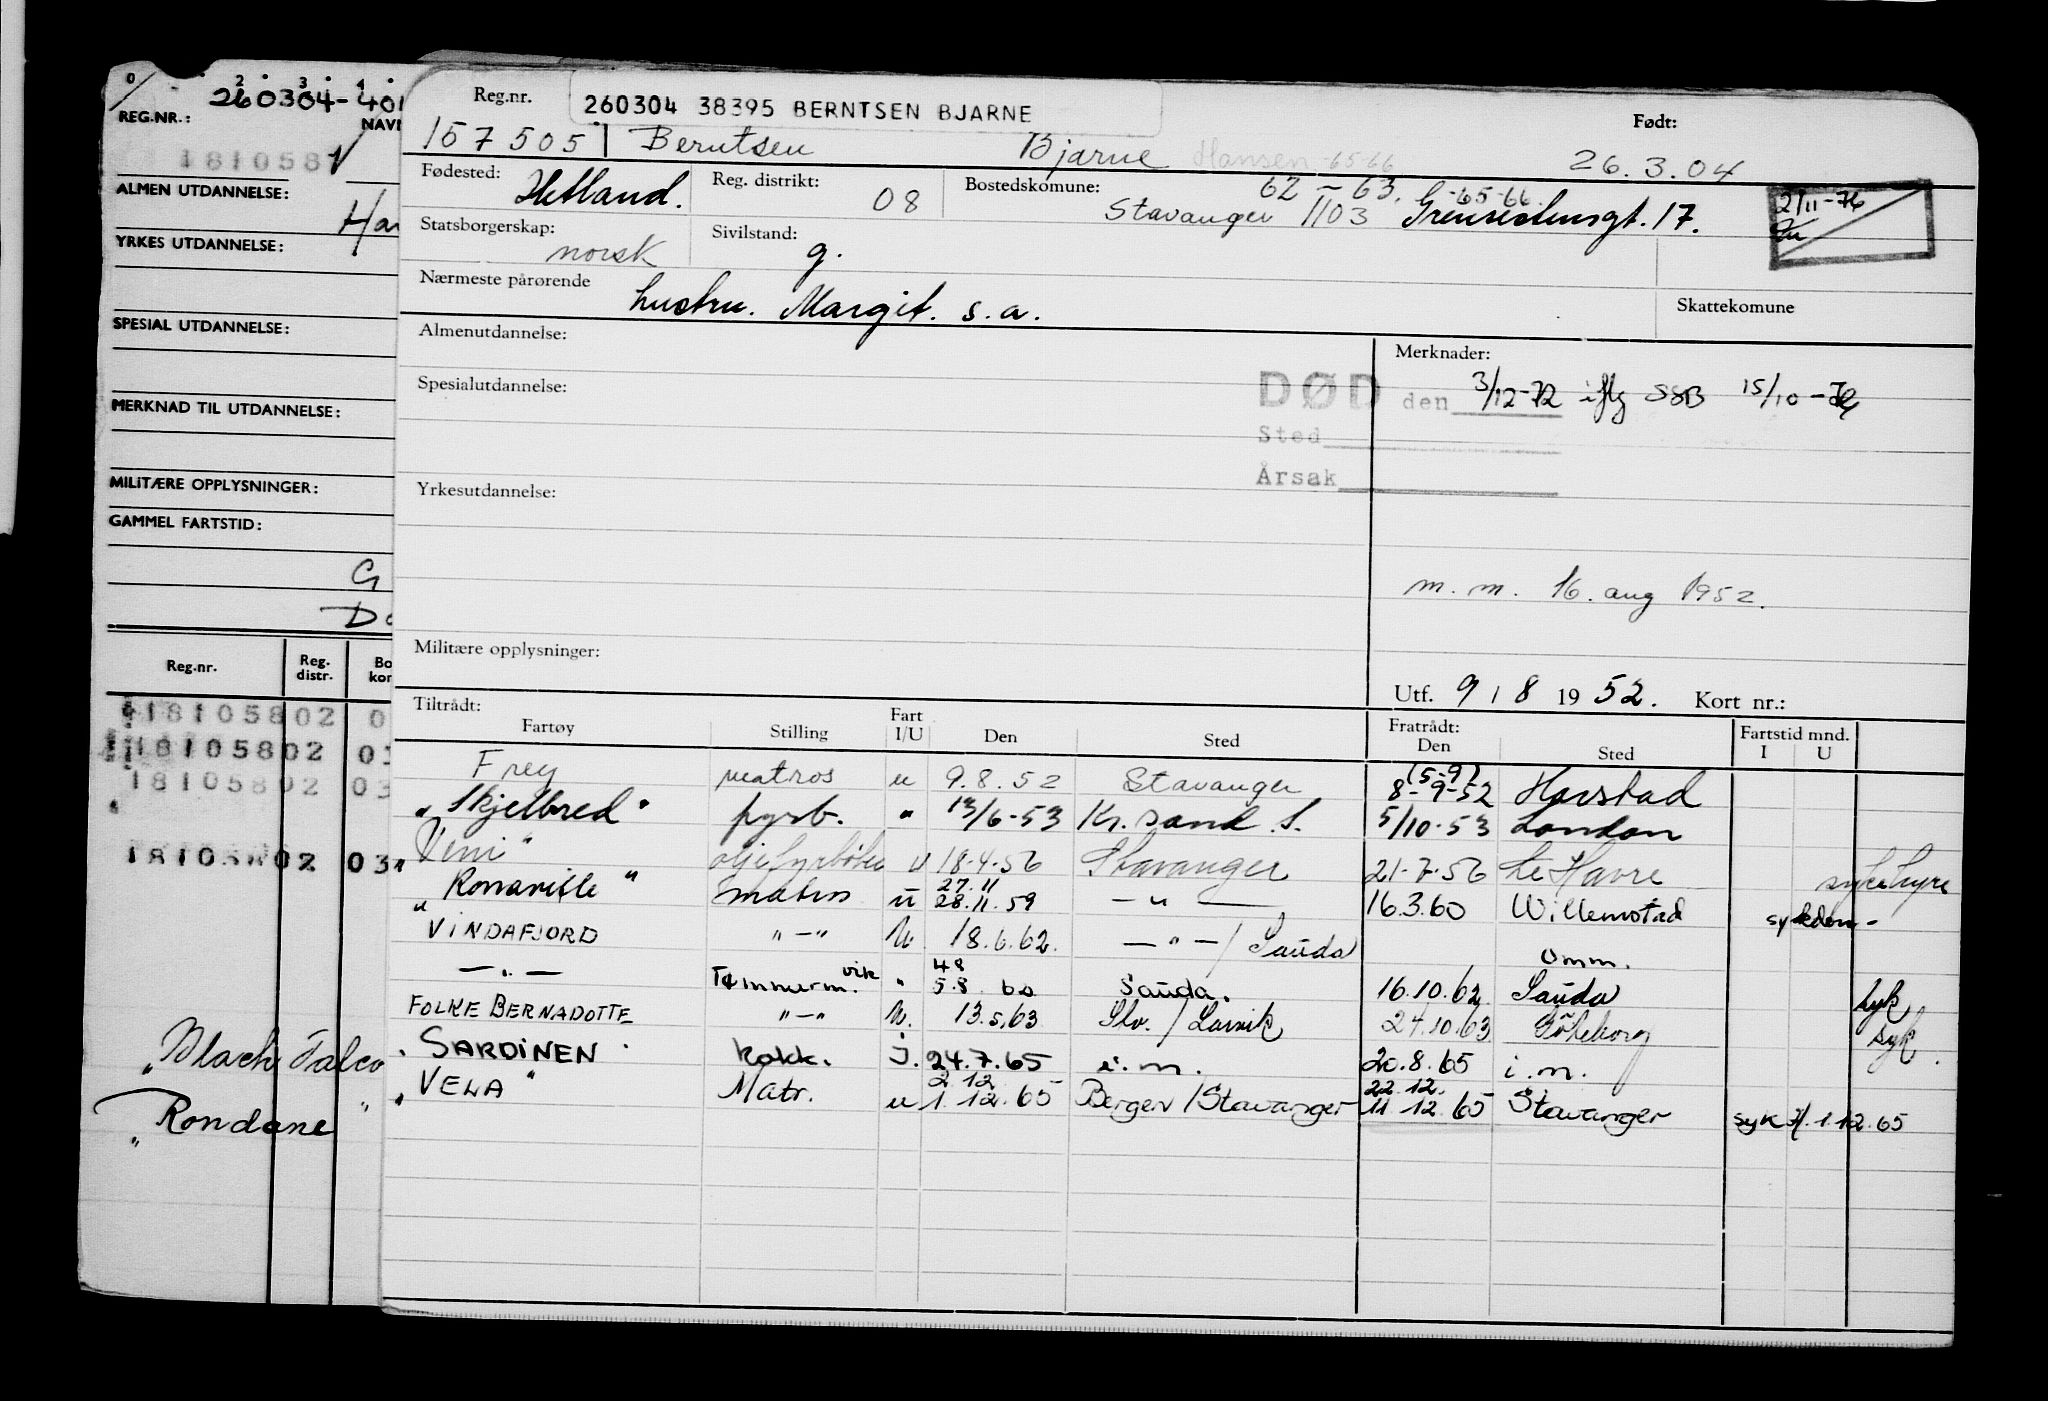 0 2 3 4
260304-401
REG.NR.: NAV
1810581
ALMEN UTDANNELSE:
Ha
YRKES UTDANNELSE:
SPESIAL UTDANNELSE:
MERKNAD TIL UTDANNELSE:
MILITÆRE OPPLYSNINGER:
GAMMEL FARTSTID:
G
D
Reg.nr. Reg. distr. Bo kor
18105802 0
18105802 03
18105802 03
18105802 03
"Black Falco
"Rondane"
Reg.nr. 260304 38395 BERNTSEN BJARNE Født:
157505 Berntsen Bjarne Hansen -65-66 26.3.04
Fødested: Hetland. Reg. distrikt: 08 Bostedskomune: 62 - 63. -65-66.
Stavanger 1103 17.
2/11-76
Statsborgerskap: norsk Sivilstand: g.
Nærmeste pårørende hustru. Margit. s.a. Skattekomune
Almenutdannelse: Merknader:
Spesialutdannelse: DØD den 3/12-72 iflg SSB 15/10-
Sted
Årsak
Yrkesutdannelse:
m.m. 16. aug 1952.
Militære opplysninger:
Utf. 9 / 8 1952. Kort nr.:
Tiltrådt: Fartøy Stilling Fart I/U Den Sted Fratrådt: Den Sted Fartstid mnd. I U
Frey matros u 9.8.52 Stavanger (5-9) 8-9-52 Harstad
"Skjelbred" fyrb. " 13/6-53 Kr.sand S. 5/10-53 London
Veni" oljefyrbøter u 18-4-56 Stavanger 21-7-56 Le Havre sykehyre
"Ronaville" matros u 27.11 28.11.59 -"- 16.3.60 Willemstad sykdom-
"VINDAFJORD -"- U. 18.6.62. -"-/Sauda
-"- Tømmerm. vik " 48 5.8 60 Sauda. 16.10.62 Omm. Sauda syk
FOLKE BERNADOTTE "-" U. 13.5.63 Stv./Larvik 24.10.63 Göteborg syk.
"SARDINEN" kokk. I. 24.7.65 i.m. 20.8.65 i.m.
"VELA" Matr. u 2.12. 1.12.65 Bergen/Stavanger 22.12. 11.12.65 Stavanger syk 1.12.65